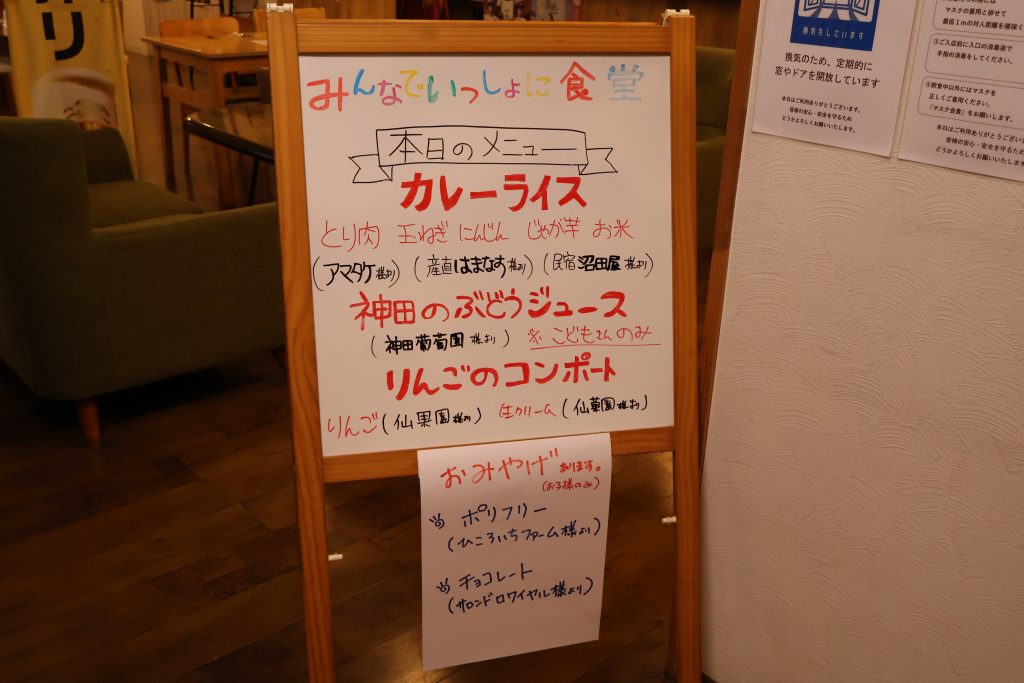 みんなでいっしょに食堂
本日のメニュー
カレーライス
とり肉 玉ねぎ にんじん じゃが芋 お米
(アマタケ様より) (産直はまなす様より) (民宿沼田屋様より)
神田のぶどうジュース
(神田葡萄園様より) ※こどもさんのみ
りんごのコンポート
りんご(仙果園様より) 生クリーム(仙菓園様より)
おみやげあります。
(お子様のみ)
ポリフリー
(ひころいちファーム様より)
チョコレート
(サロンドロワイヤル様より)
リ
換気をしています
換気のため、定期的に
窓やドアを開放しています
本日はご利用ありがとうございます。
皆様の安心・安全を守るため
どうかよろしくお願いいたします。
マスクの着用と併せて
最低1mの対人距離を確保く
③ご入店前に入口の消毒液で
手指の消毒をしてください。
④飲食中以外にはマスクを
正しくご着用ください。
「マスク会食」をお願いします。
本日はご利用ありがとうござい
皆様の安心・安全を守るため
どうかよろしくお願いいたしま